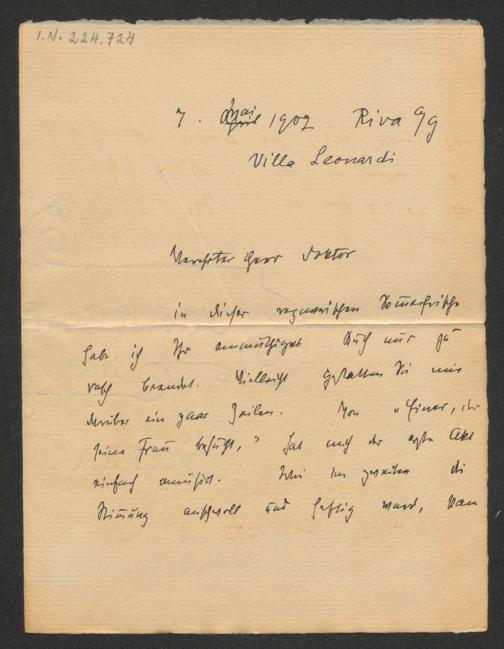 I.N. 224.724
7. April Mai 1902 Riva a/g
Villa Leonardi
Verehrter Herr Doktor
in dieser regnerischen Sommerfrische
habe ich Ihr anmuthiges Buch nur zu
rasch beendet. Vielleicht gestatten Sie mir
darüber ein paar Zeilen. Von "Einer, der
seine Frau besucht," hat mich der erste Akt
einfach amüsirt. Wie im zweiten die
Stimmung and heftig ward, kam